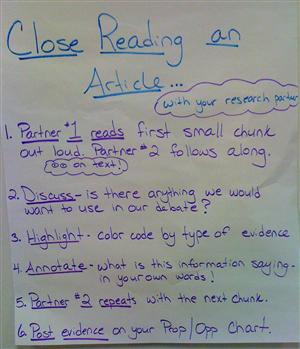 Close Reading an
Article...
with your research partner
1. Partner #1 reads first small chunk
out loud. Partner #2 follows along.
on text!
2. Discuss - is there anything we would
want to use in our debate?
3. Highlight - color code by type of evidence
4. Annotate - what is this information saying -
in your own words!
5. Partner #2 repeats with the next chunk.
6. Post evidence on your Prop/Opp Chart.